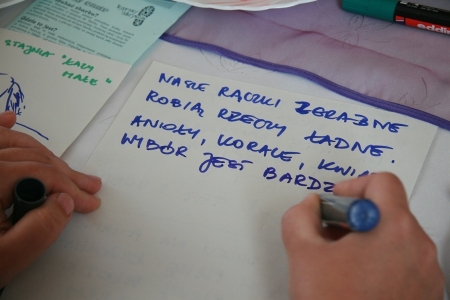 STAJNIA "ŁAPY
MAŁE"
NASZE RĄCZKI ZGRABNE
ROBIĄ RZECZY ŁADNE.
ANIOŁY, KORALE, KWIA
WYBÓR JEST BARDZ
eddi